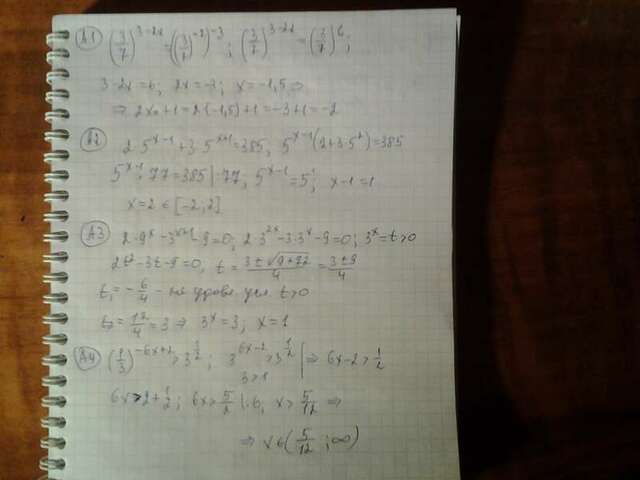 А1 (3/7)^(3-2x) = ((3/7)^(-2))^(-3); (3/7)^(3-2x) = (3/7)^6;
3-2x=6, 2x=-3; x=-1,5 ⇒
⇒ 2x₀+1=2(-1,5)+1=-3+1=-2
А2 2·5^(x-1)+3·5^(x+1)=385; 5^(x-1)(2+3·5²)=385
5^(x-1)·77=385 |:77; 5^(x-1)=5¹; x-1=1
x=2 ∈ [-2;2]
А3 2·9^x-3^(x+1)-9=0; 2·3^(2x)-3·3^x-9=0; 3^x=t>0
2t²-3t-9=0, t=(3±√(9+72))/4=(3±9)/4
t₁=-6/4 - не удовл усл t>0
t₂=12/4=3 ⇒ 3^x=3; x=1
А4 (1/3)^(-6x+2)>3^(1/2); 3^(6x-2)>3^(1/2) | ⇒ 6x-2>1/2
3>1
6x>2+1/2; 6x>5/2 |:6, x>5/12 ⇒
⇒ x∈(5/12;∞)